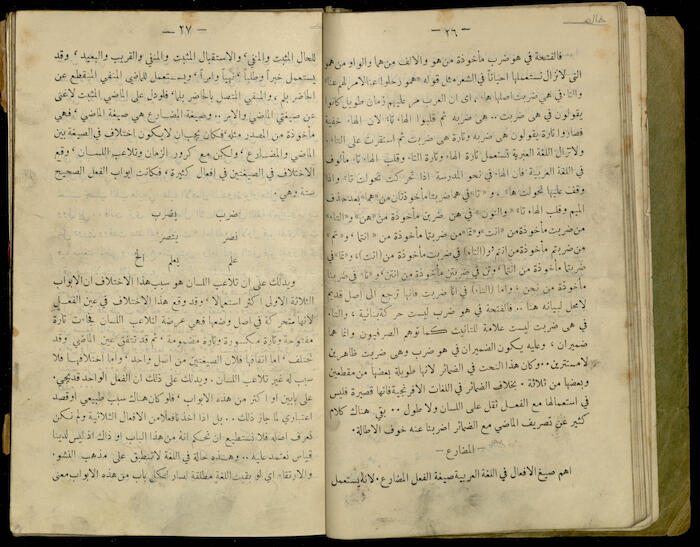 - ٢٦ -
فالفتحة في هو ضرب مأخوذة من هو والالف من هما والواو من همو
التى لانزال نستعملها احياناً في الشعر مثل قوله «همو رحلوا عنا لامر لهم عنا»
والتاء في هي ضربت اصلها هاء ، اى ان العرب مر عليهم زمان طويل كانوا
يقولون في هى ضربت .. هى ضربه ثم قلبوا الهاء تاء لان الهاء خفية
فصاروا تارة يقولون هى ضربه وتارة هى ضربت ثم استقرت على التاء.
ولا تزال اللغة العبرية تستعمل تارة الهاء وتارة التاء وقلب الهاء تاء مألوف
في اللغة العربية فان الهاء في نحو المدرسة اذا تحركت تحولت تاء واذا
وقف عليها تحولت هاء ، و «تا» في هما ضربتا مأخوذتان من «هما» بعد حذف
الميم وقلب الهاء تاء «والنون» في هن ضربن مأخوذة من «هن» و«التاء»
من ضربت مأخوذة من «انت» و«تما» من ضربتما مأخوذة من «انتما» و«تم»
من ضربتم مأخوذة من انتم و(التاء) في ضربت مأخوذة من (انت)، و«تما» في
ضربتما مأخوذة من انتما ، وتن في ضربتن مأخوذة من انتن و«نا» في ضربنا
مأخوذة من نحن ، واما (التاء) في انا ضربت فانها ترجع الى اصل قديم
لامحل لبيانه هنا .. فالفتحة في هو ضرب ليست حركة بنائية ، والتاء
في هى ضربت ليست علامة للتانيث كما توهم الصرفيون وانما هما
ضميران ، وعليه يكون الضميران في هو ضرب وهى ضربت ظاهرين
لامستترين .. وكان هذا النحت في الضمائر لانها طويلة بعضها من مقطعين
وبعضها من ثلاثة . بخلاف الضمائر في اللغات الافرنجية فانها قصيرة فليس
في استعمالها مع الفعل ثقل على اللسان ولا طول .. بقى هناك كلام
كثير عن تصريف الماضي مع الضمائر اضربنا عنه خوف الاطالة.
- المضارع -
اهم صيغ الافعال في اللغة العربية صيغة الفعل المضارع. لانه يستعمل
- ٢٧ -
للحال المثبت والمنفي ، والاستقبال المثبت والمنفي والقريب والبعيد ، وقد
يستعمل خبراً وطلباً ، نهياً وامراً ، ويستعمل للماضي المنفي المنقطع عن
الحاضر بلم ، والمنفي المتصل بالحاضر بلما، فلو دل على الماضي المثبت لاغنى
عن صيغتى الماضي والامر .. وصيغة المضارع هي صيغة الماضي ، فهى
مأخوذة من المصدر مثله ، فكان يجب ان لايكون اختلاف في الصيغة بين
الماضي والمضارع ، ولكن مع كرور الزمان وتلاعب اللسان ، وقع
الاختلاف في الصيغتين في افعال كثيرة ، فكانت ابواب الفعل الصحيح
ستة وهي .
ضرب يضرب
نصر ينصر
علم يعلم الخ
ويدلك على ان تلاعب اللسان هو سبب هذا الاختلاف ان الابواب
الثلاثة الاولى اكثر استعمالا ، وقد وقع هذا الاختلاف في عين الفعل
لانها متحركة في اصل وضعها فهى عرضة لتلاعب اللسان فجاءت تارة
مفتوحة وتارة مكسورة وتارة مضمومة ، ثم قد تتفق عين الماضي وقد
تختلف ، اما اتفاقها فلان الصيغتين من اصل واحد ، واما اختلافها فلا
سبب له غير تلاعب اللسان . ويدلك على ذلك ان الفعل الواحد قد يجي
على بابين او اكثر من هذه الابواب ، فلو كان هناك سبب طبيعي او قصد
اعتبارى لما جاز ذلك .. بل اذا اخذنا فعلا من الافعال الثلاثية ولم نكن
نعرف اصله فلا نستطيع ان نحكم انه من هذا الباب او ذاك اذ ليس لدينا
قياس نعتمد عليه .. وهذه حالة في اللغة لا تنطبق على مذهب النشو.
والارتقاء اى لو بقيت اللغة مطلقة لصار لكل باب من هذه الابواب معنى